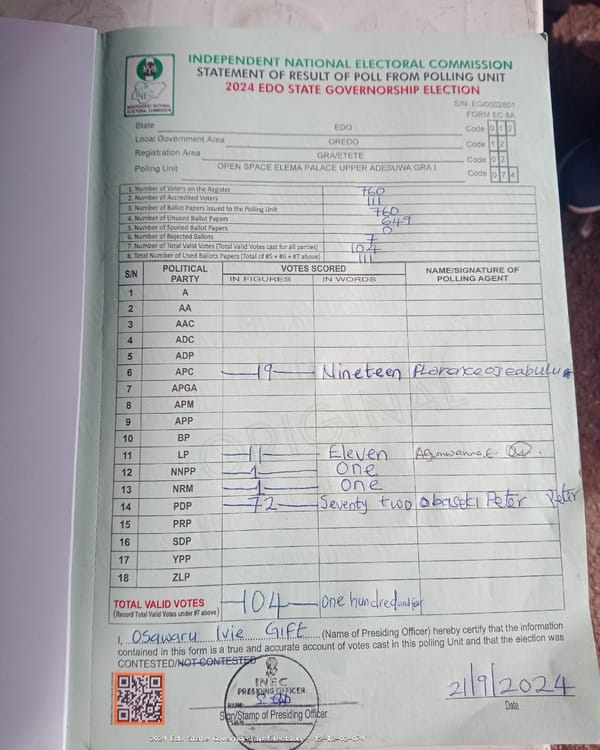 INDEPENDENT NATIONAL ELECTORAL COMMISSION
STATEMENT OF RESULT OF POLL FROM POLLING UNIT
2024 EDO STATE GOVERNORSHIP ELECTION
INEC
INDEPENDENT NATIONAL ELECTORAL COMMISSION
S/N: EG/0002601
FORM EC 8A
State EDO Code 0 1 2
Local Government Area OREDO Code 1 2
Registration Area GRA/ETETE Code 0 2
Polling Unit OPEN SPACE ELEMA PALACE UPPER ADESUWA GRA I Code 0 7 4
1. Number of Voters on the Register 760
2. Number of Accredited Voters 111
3. Number of Ballot Papers Issued to the Polling Unit 760
4. Number of Unused Ballot Papers 649
5. Number of Spoiled Ballot Papers 0
6. Number of Rejected Ballots 7
7. Number of Total Valid Votes (Total Valid Votes cast for all parties) 104
8. Total Number of Used Ballots Papers (Total of #5 + #6 + #7 above) 111
S/N POLITICAL PARTY VOTES SCORED NAME/SIGNATURE OF POLLING AGENT
IN FIGURES IN WORDS
1 A
2 AA
3 AAC
4 ADC
5 ADP
6 APC 19 Nineteen Florence
7 APGA
8 APM
9 APP
10 BP
11 LP 11 Eleven
12 NNPP 1 One
13 NRM 1 One
14 PDP 72 Seventy two Obaseki Peter
15 PRP
16 SDP
17 YPP
18 ZLP
TOTAL VALID VOTES 104 One hundred and four
(Record Total Valid Votes under #7 above)
I, Osawaru Ivie Gift (Name of Presiding Officer) hereby certify that the information
contained in this form is a true and accurate account of votes cast in this polling Unit and that the election was
CONTESTED/NOT CONTESTED
INEC
PRESIDING OFFICER
Sign/Stamp of Presiding Officer
21/9/2024
Date
2024 Edo State Governorship Election - 12-12-02-074